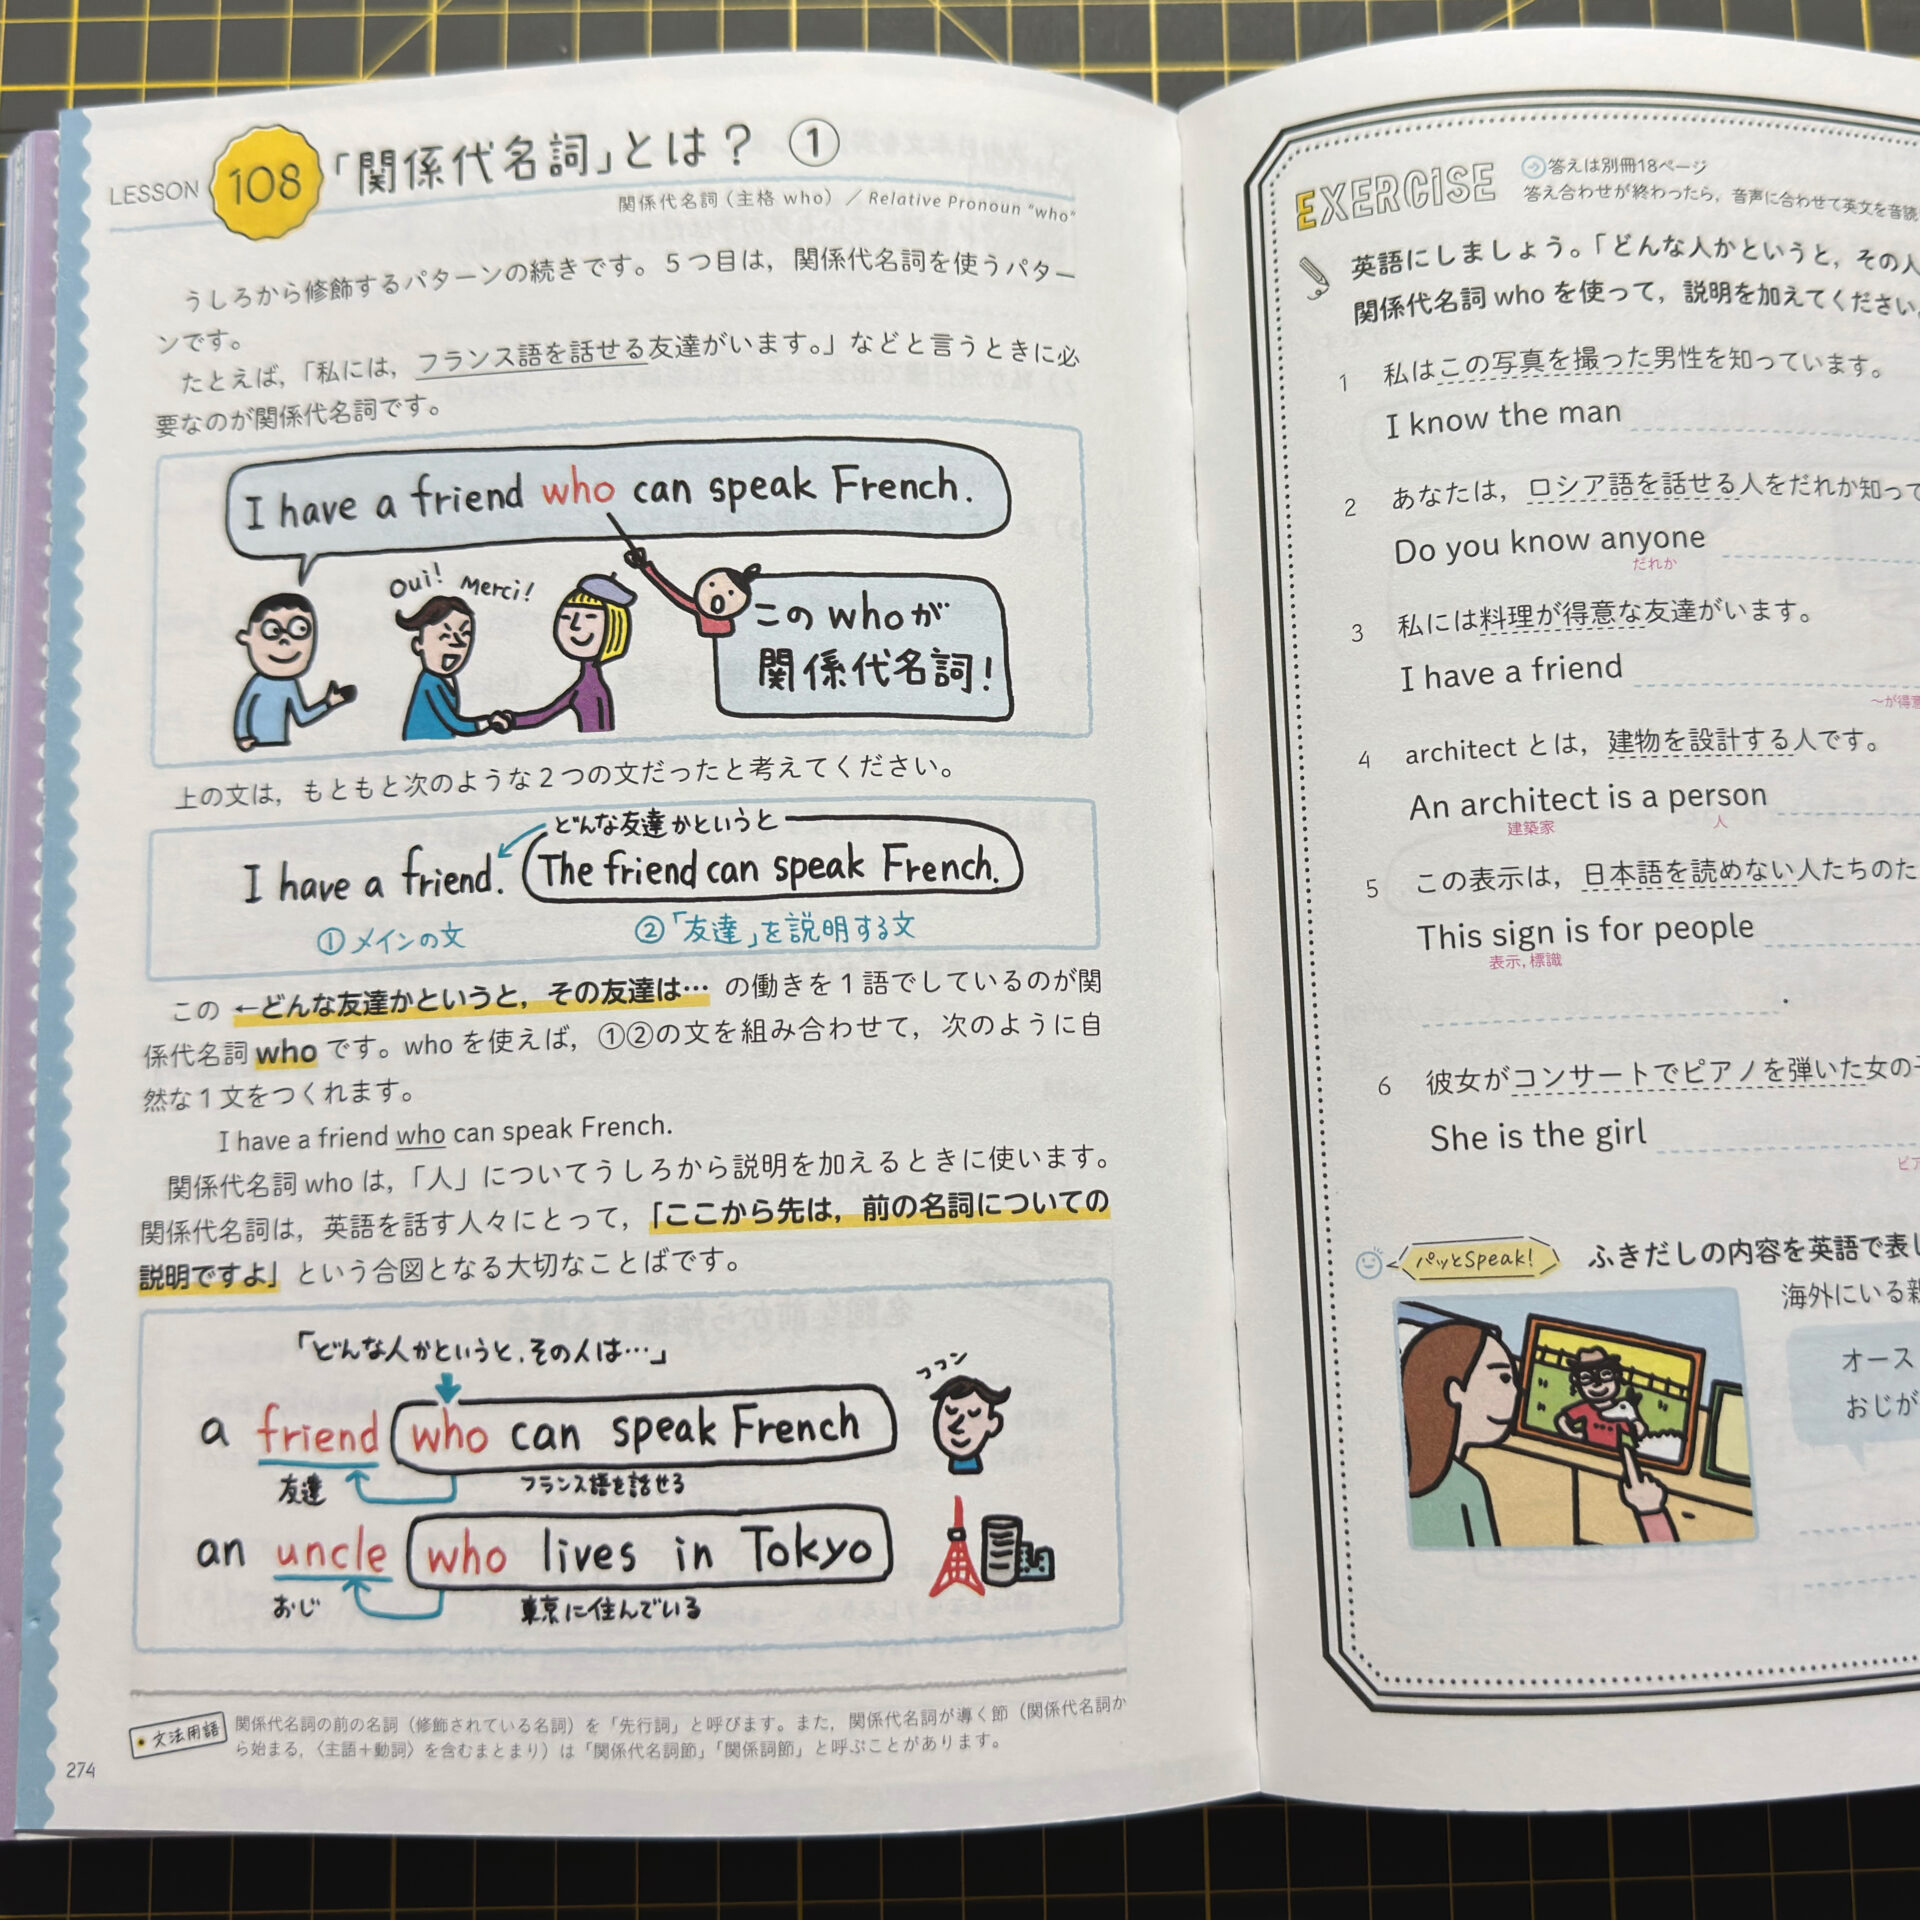 LESSON 108 「関係代名詞」とは？ ①
関係代名詞（主格 who）／ Relative Pronoun "who"
うしろから修飾するパターンの続きです。５つ目は，関係代名詞を使うパター
ンです。
たとえば，「私には，フランス語を話せる友達がいます。」などと言うときに必
要なのが関係代名詞です。
I have a friend who can speak French.
Oui! Merci!
このwhoが
関係代名詞！
上の文は，もともと次のような２つの文だったと考えてください。
どんな友達かというと
I have a friend. The friend can speak French.
①メインの文 ②「友達」を説明する文
この ←どんな友達かというと，その友達は… の働きを１語でしているのが関
係代名詞 who です。who を使えば，①②の文を組み合わせて，次のように自
然な１文をつくれます。
I have a friend who can speak French.
関係代名詞 who は，「人」についてうしろから説明を加えるときに使います。
関係代名詞は，英語を話す人々にとって，「ここから先は，前の名詞についての
説明ですよ」という合図となる大切なことばです。
「どんな人かというと，その人は…」
フフン
a friend who can speak French
友達 フランス語を話せる
an uncle who lives in Tokyo
おじ 東京に住んでいる
文法用語 関係代名詞の前の名詞（修飾されている名詞）を「先行詞」と呼びます。また，関係代名詞が導く節（関係代名詞か
ら始まる，〈主語＋動詞〉を含むまとまり）は「関係代名詞節」「関係詞節」と呼ぶことがあります。
274
EXERCISE
答えは別冊18ページ
答え合わせが終わったら，音声に合わせて英文を音読
英語にしましょう。「どんな人かというと，その人
関係代名詞 who を使って，説明を加えてください。
1 私はこの写真を撮った男性を知っています。
I know the man
2 あなたは，ロシア語を話せる人をだれか知って
Do you know anyone
だれか
3 私には料理が得意な友達がいます。
I have a friend
〜が得意
4 architect とは，建物を設計する人です。
An architect is a person
建築家 人
5 この表示は，日本語を読めない人たちのた
This sign is for people
表示，標識
.
6 彼女がコンサートでピアノを弾いた女の子
She is the girl
ピア
パッとSpeak! ふきだしの内容を英語で表し
海外にいる親
オース
おじが